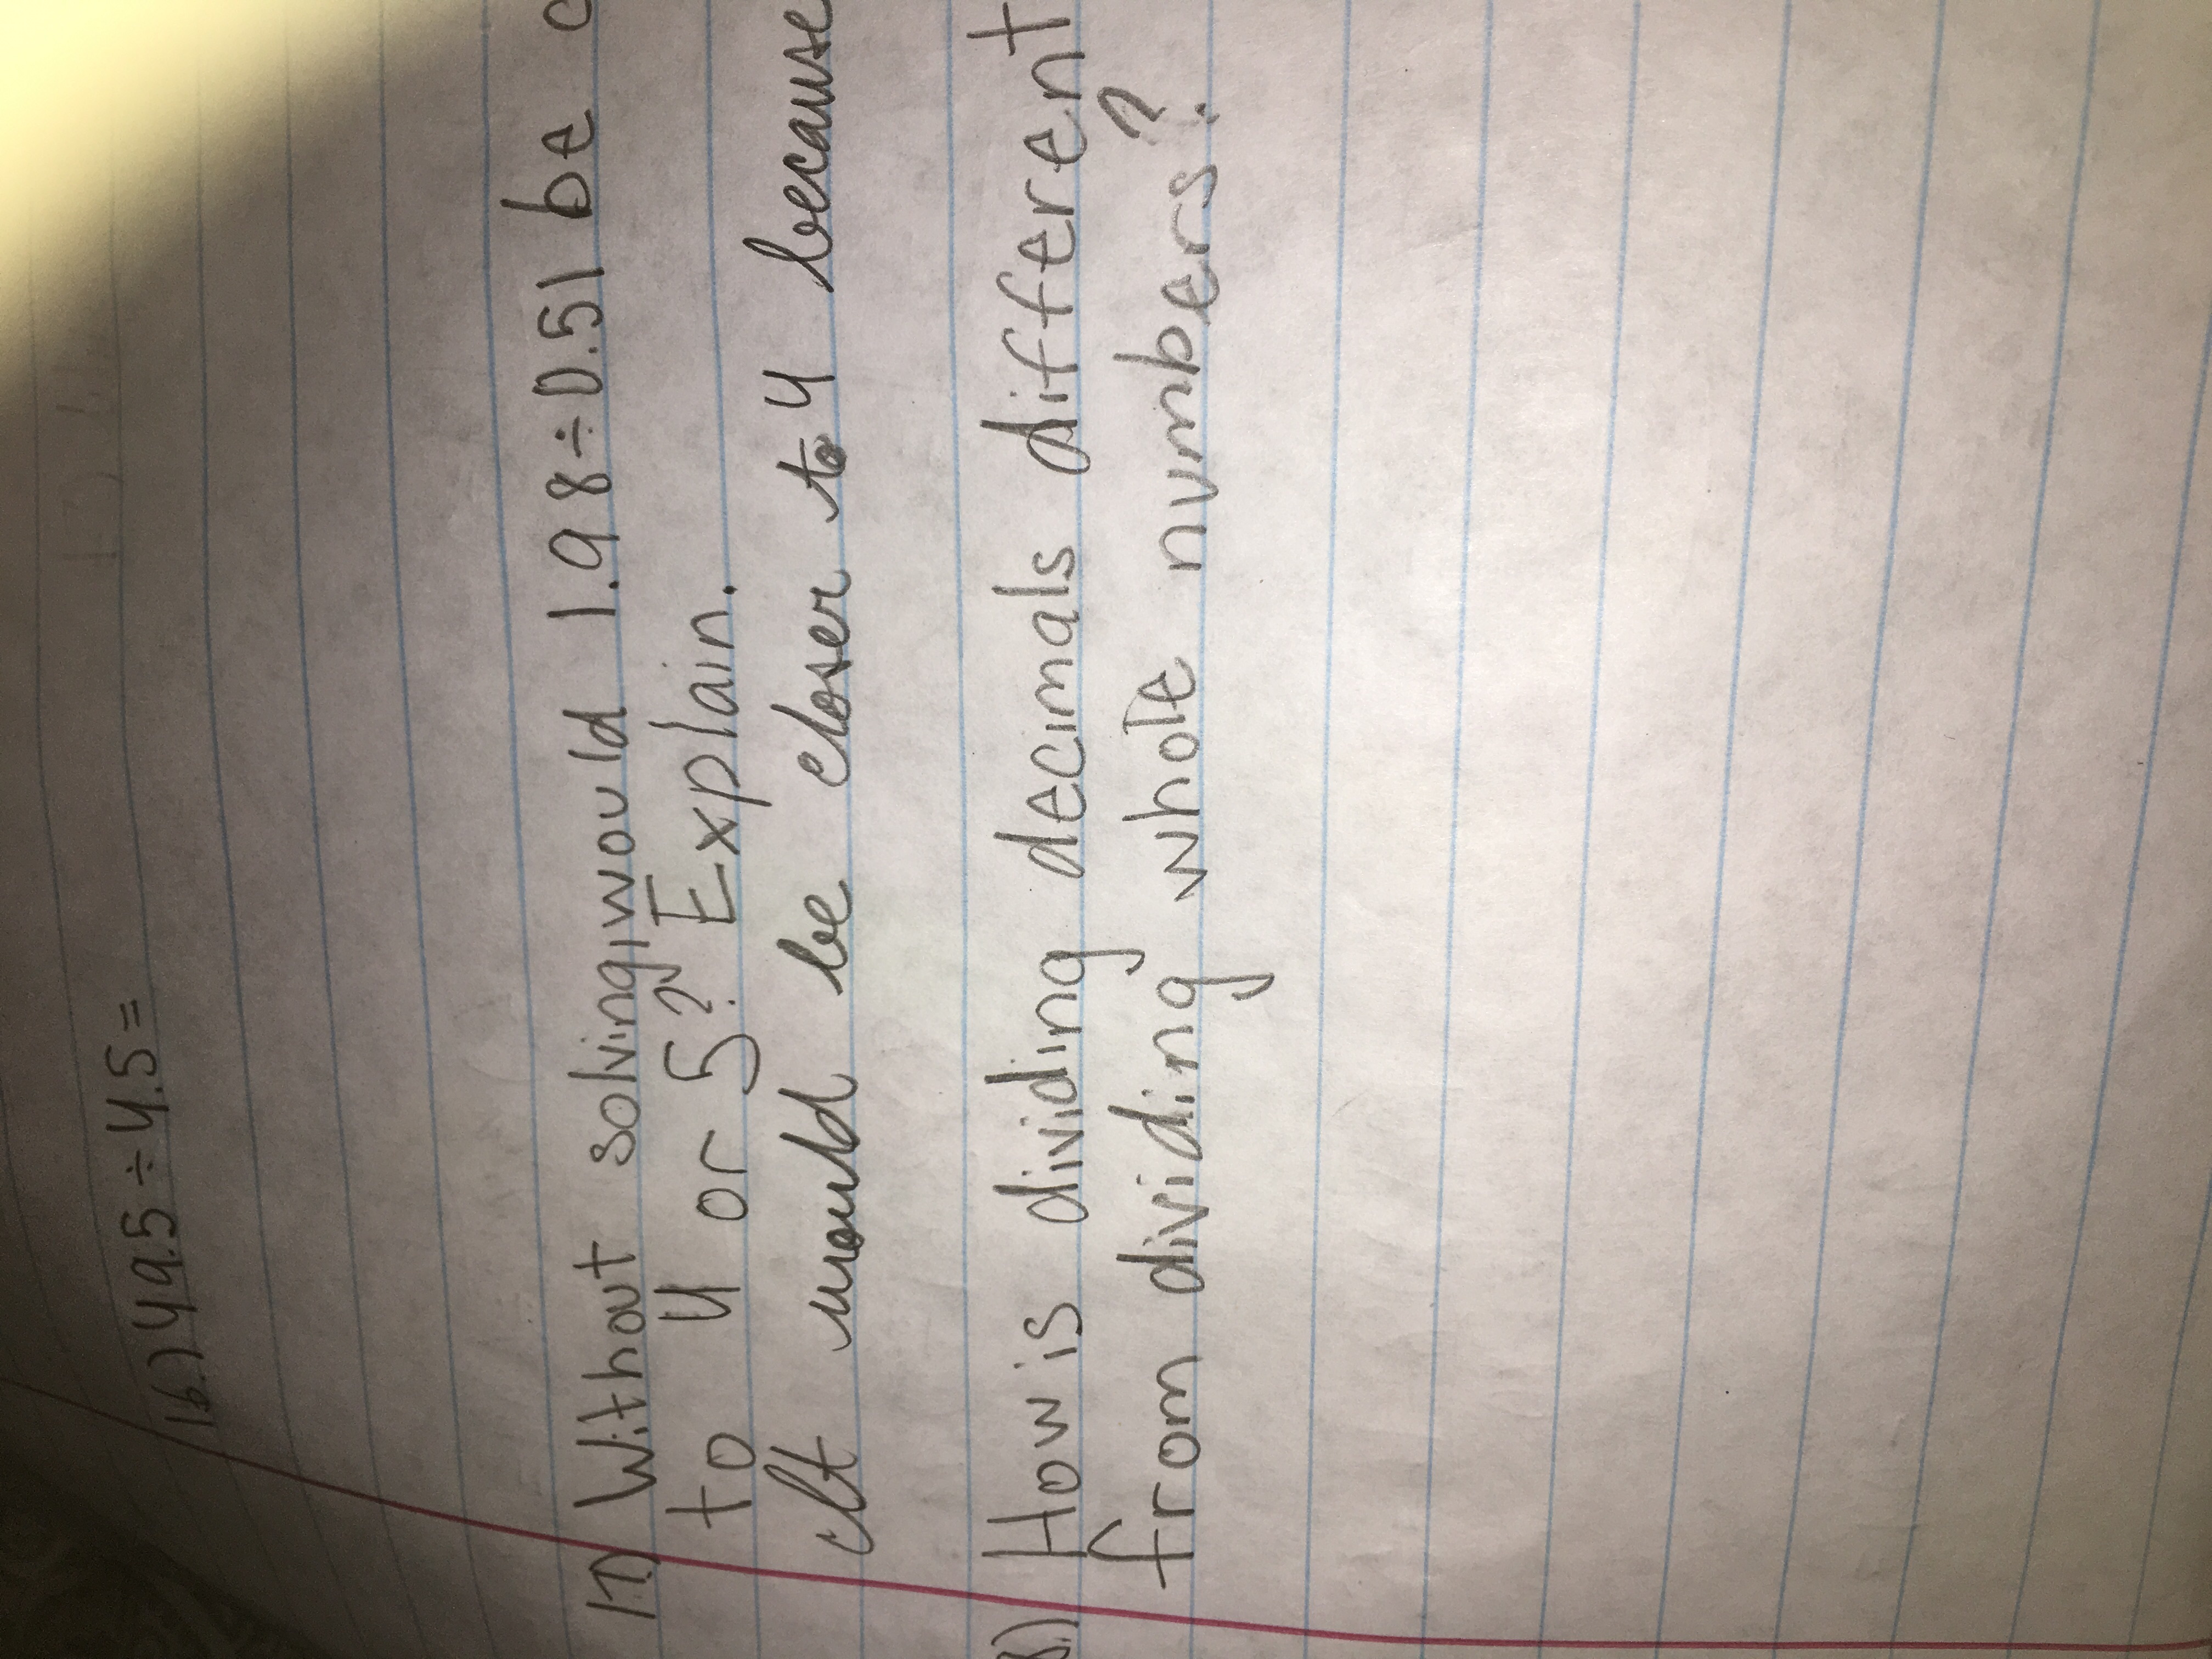 16.) 49.5÷4.5=
17) Without solving, would 1.98÷0.51 be c
to 4 or 5? Explain.
It would be closer to 4 because
8.) How is dividing decimals different
from dividing whole numbers?